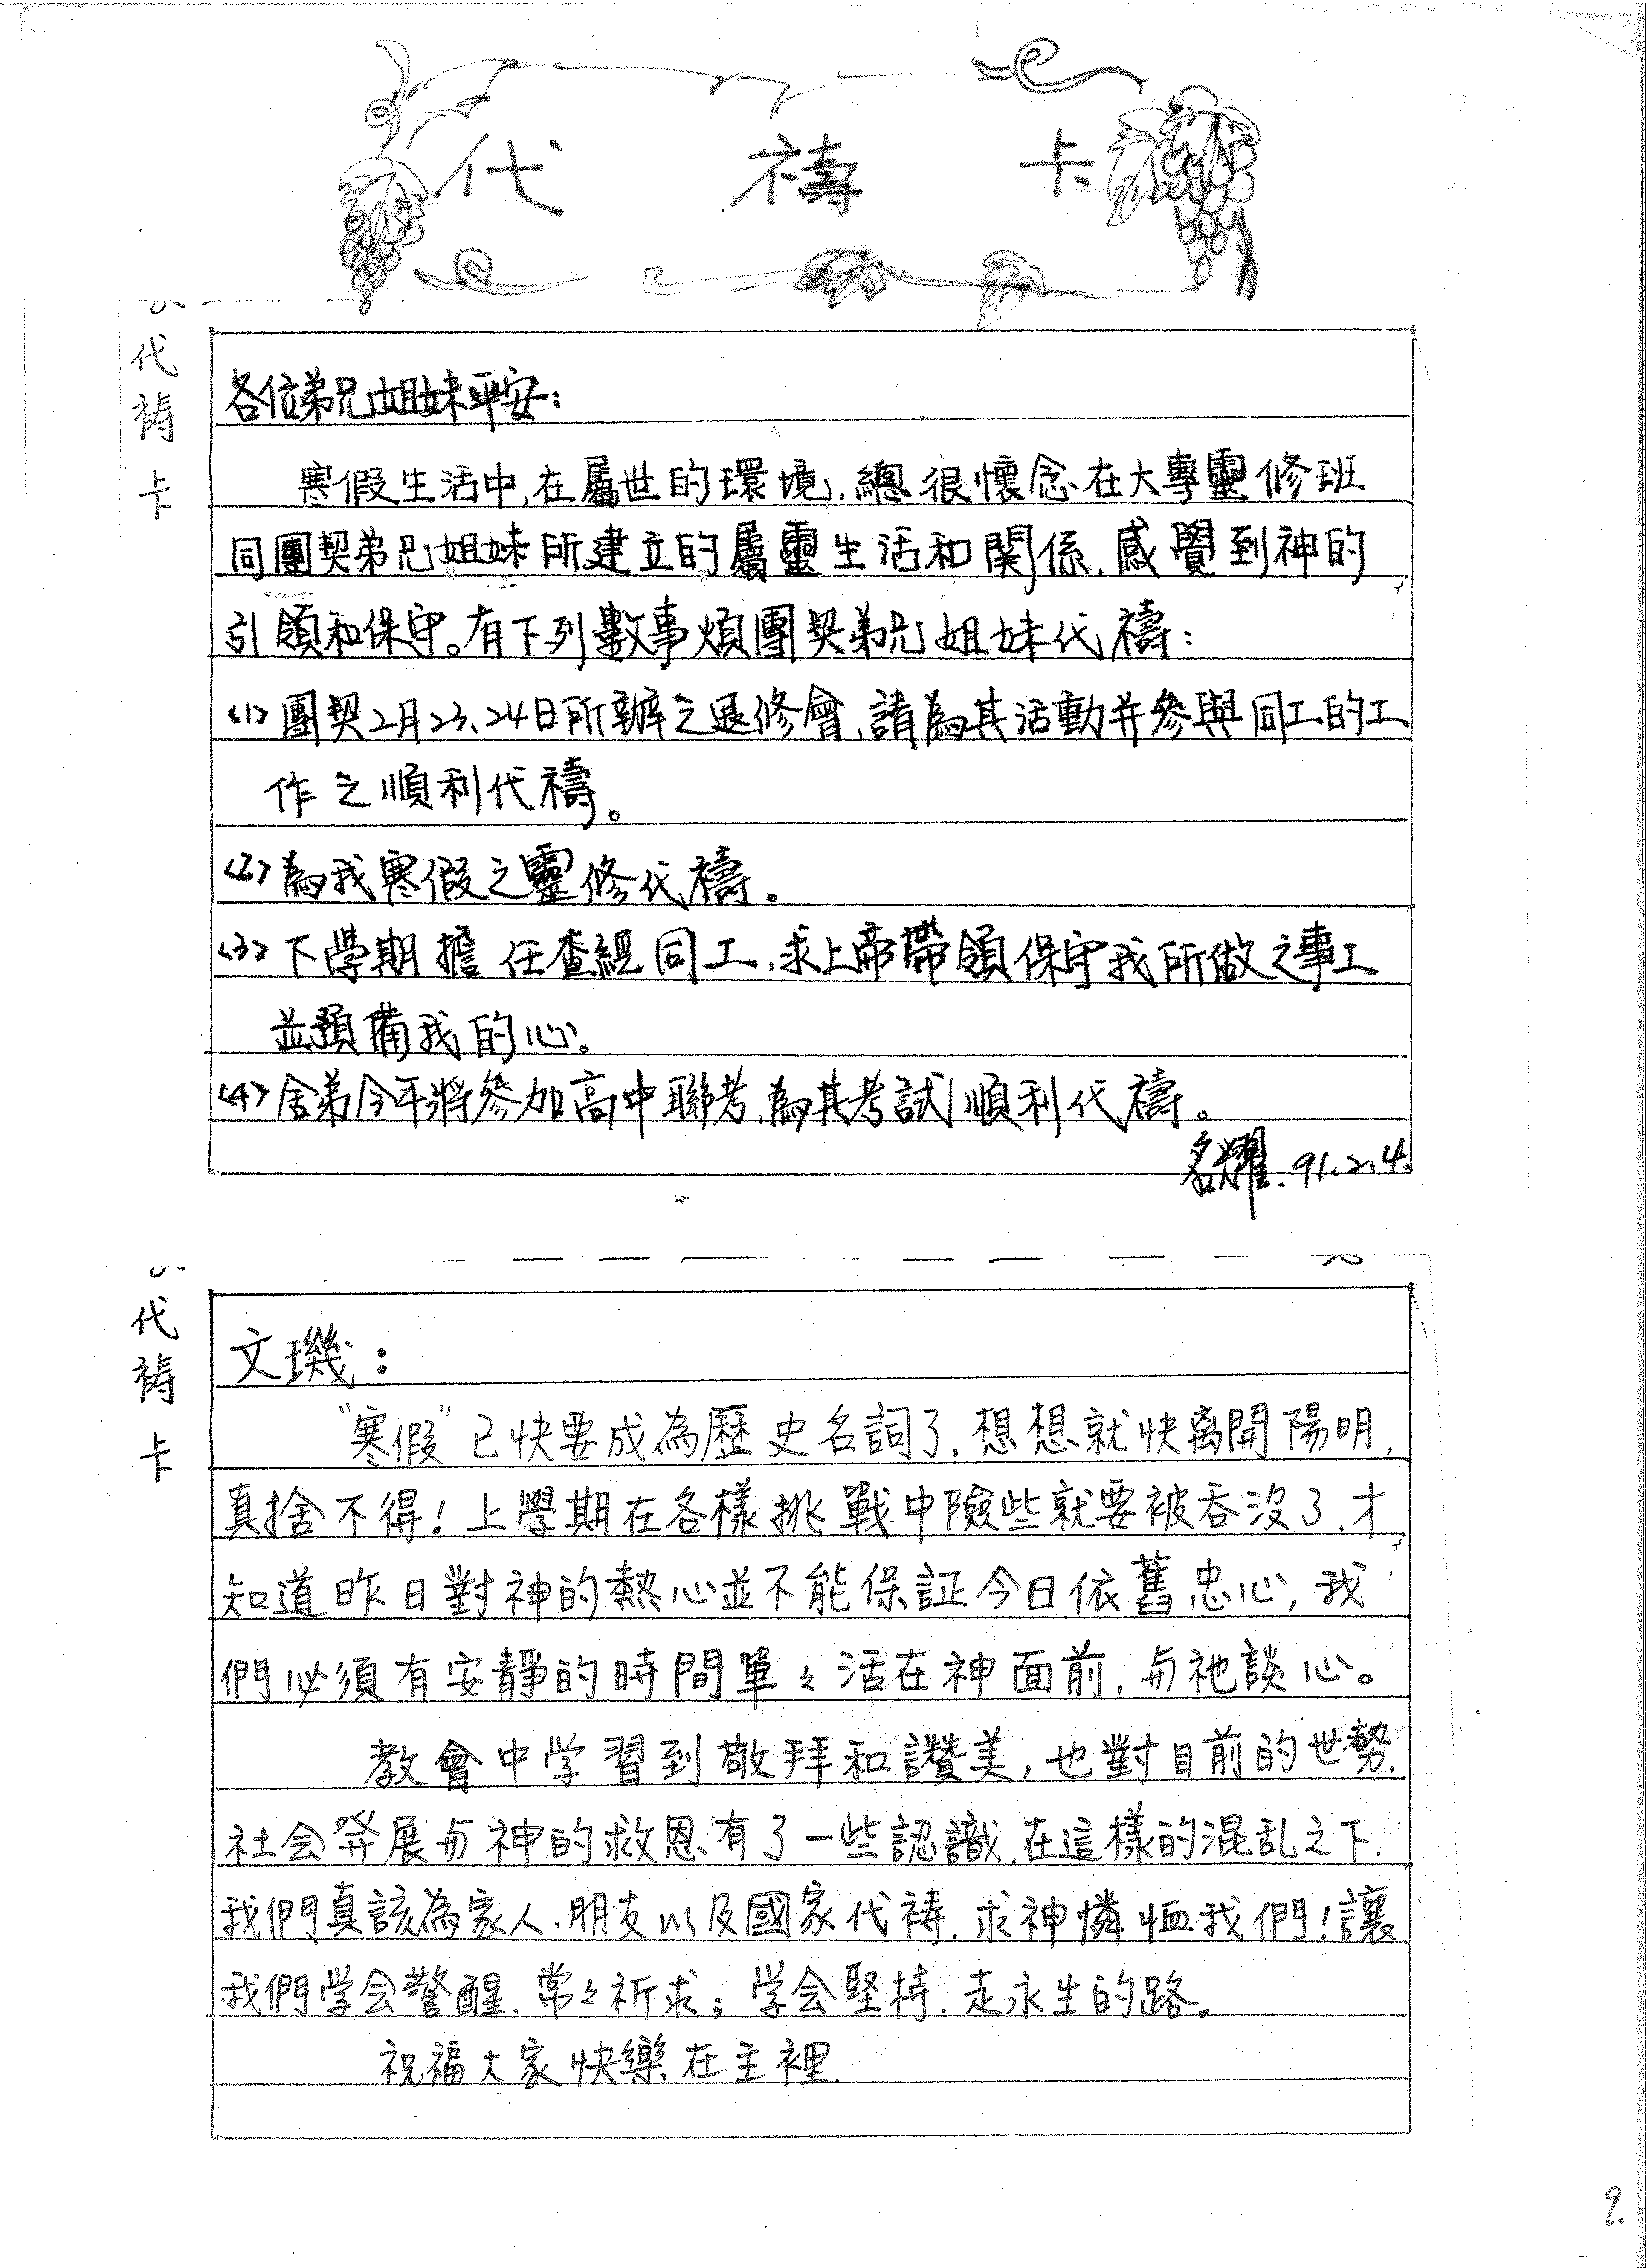 代禱卡
代禱卡
各位弟兄姐妹平安:
寒假生活中,在屬世的環境,總很懷念在大專靈修班
同團契弟兄姐妹所建立的屬靈生活和關係,感覺到神的
引領和保守。有下列數事煩團契弟兄姐妹代禱:
(1) 團契2月23、24日所辦之退修會,請為其活動并參與同工的工
作之順利代禱。
(2) 為我寒假之靈修代禱。
(3) 下學期擔任查經同工,求上帝帶領保守我所做之事工
並預備我的心。
(4) 舍弟今年將參加高中聯考,為其考試順利代禱。
名耀. 91.2.4.
代祷卡
文璣:
"寒假"已快要成為歷史名詞了,想想就快离開陽明,
真捨不得!上學期在各樣挑戰中險些就要被吞沒了,才
知道昨日對神的熱心並不能保証今日依舊忠心,我
們必須有安靜的時間單々活在神面前,与祂談心。
教會中学習到敬拜和讚美,也對目前的世勢,
社会發展与神的救恩有了一些認識,在這樣的混乱之下,
我們真該為家人、朋友以及國家代祷,求神憐恤我們!讓
我們学会警醒,常々祈求;学会堅持,走永生的路。
祝福大家快樂在主裡.
9.